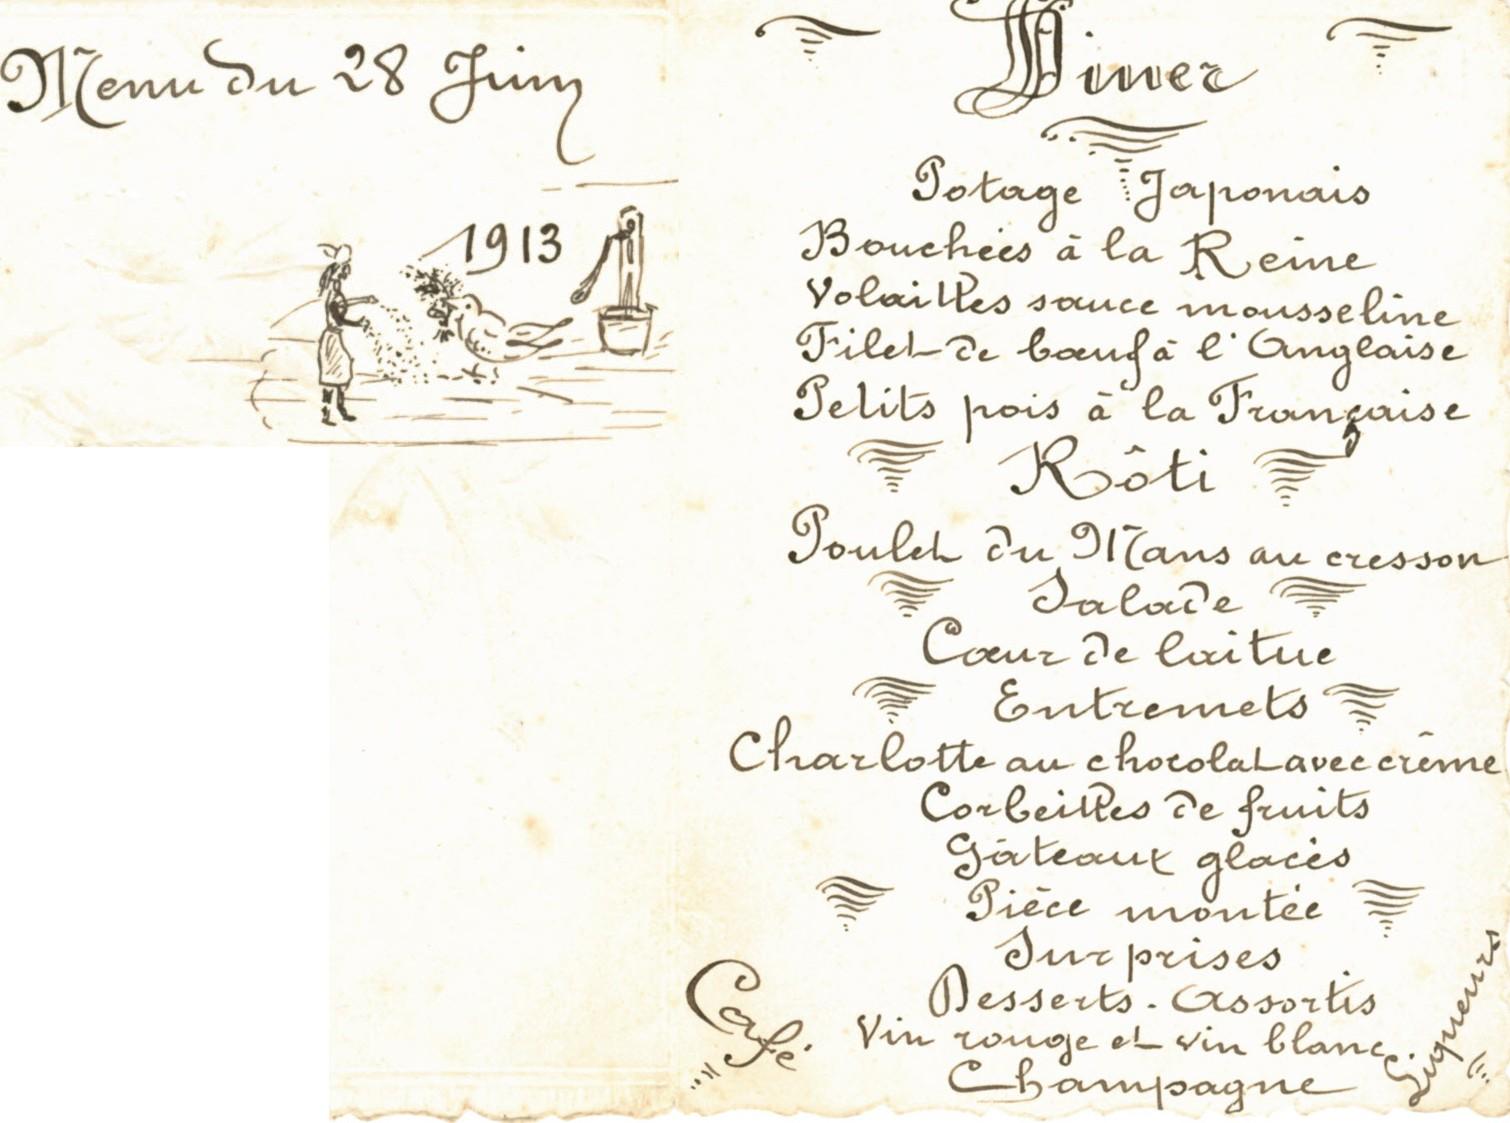 Menu du 28 Juin
1913
Dîner
Potage Japonais
Bouchées à la Reine
Volailles sauce mousseline
Filet de bœuf à l'Anglaise
Petits pois à la Française
Rôti
Poulet du Mans au cresson
Salade
Cœur de laitue
Entremets
Charlotte au chocolat avec crème
Corbeilles de fruits
Gâteaux glacés
Pièce montée
Surprises
Desserts - Assortis
Vin rouge et vin blanc
Champagne
Café
Liqueurs